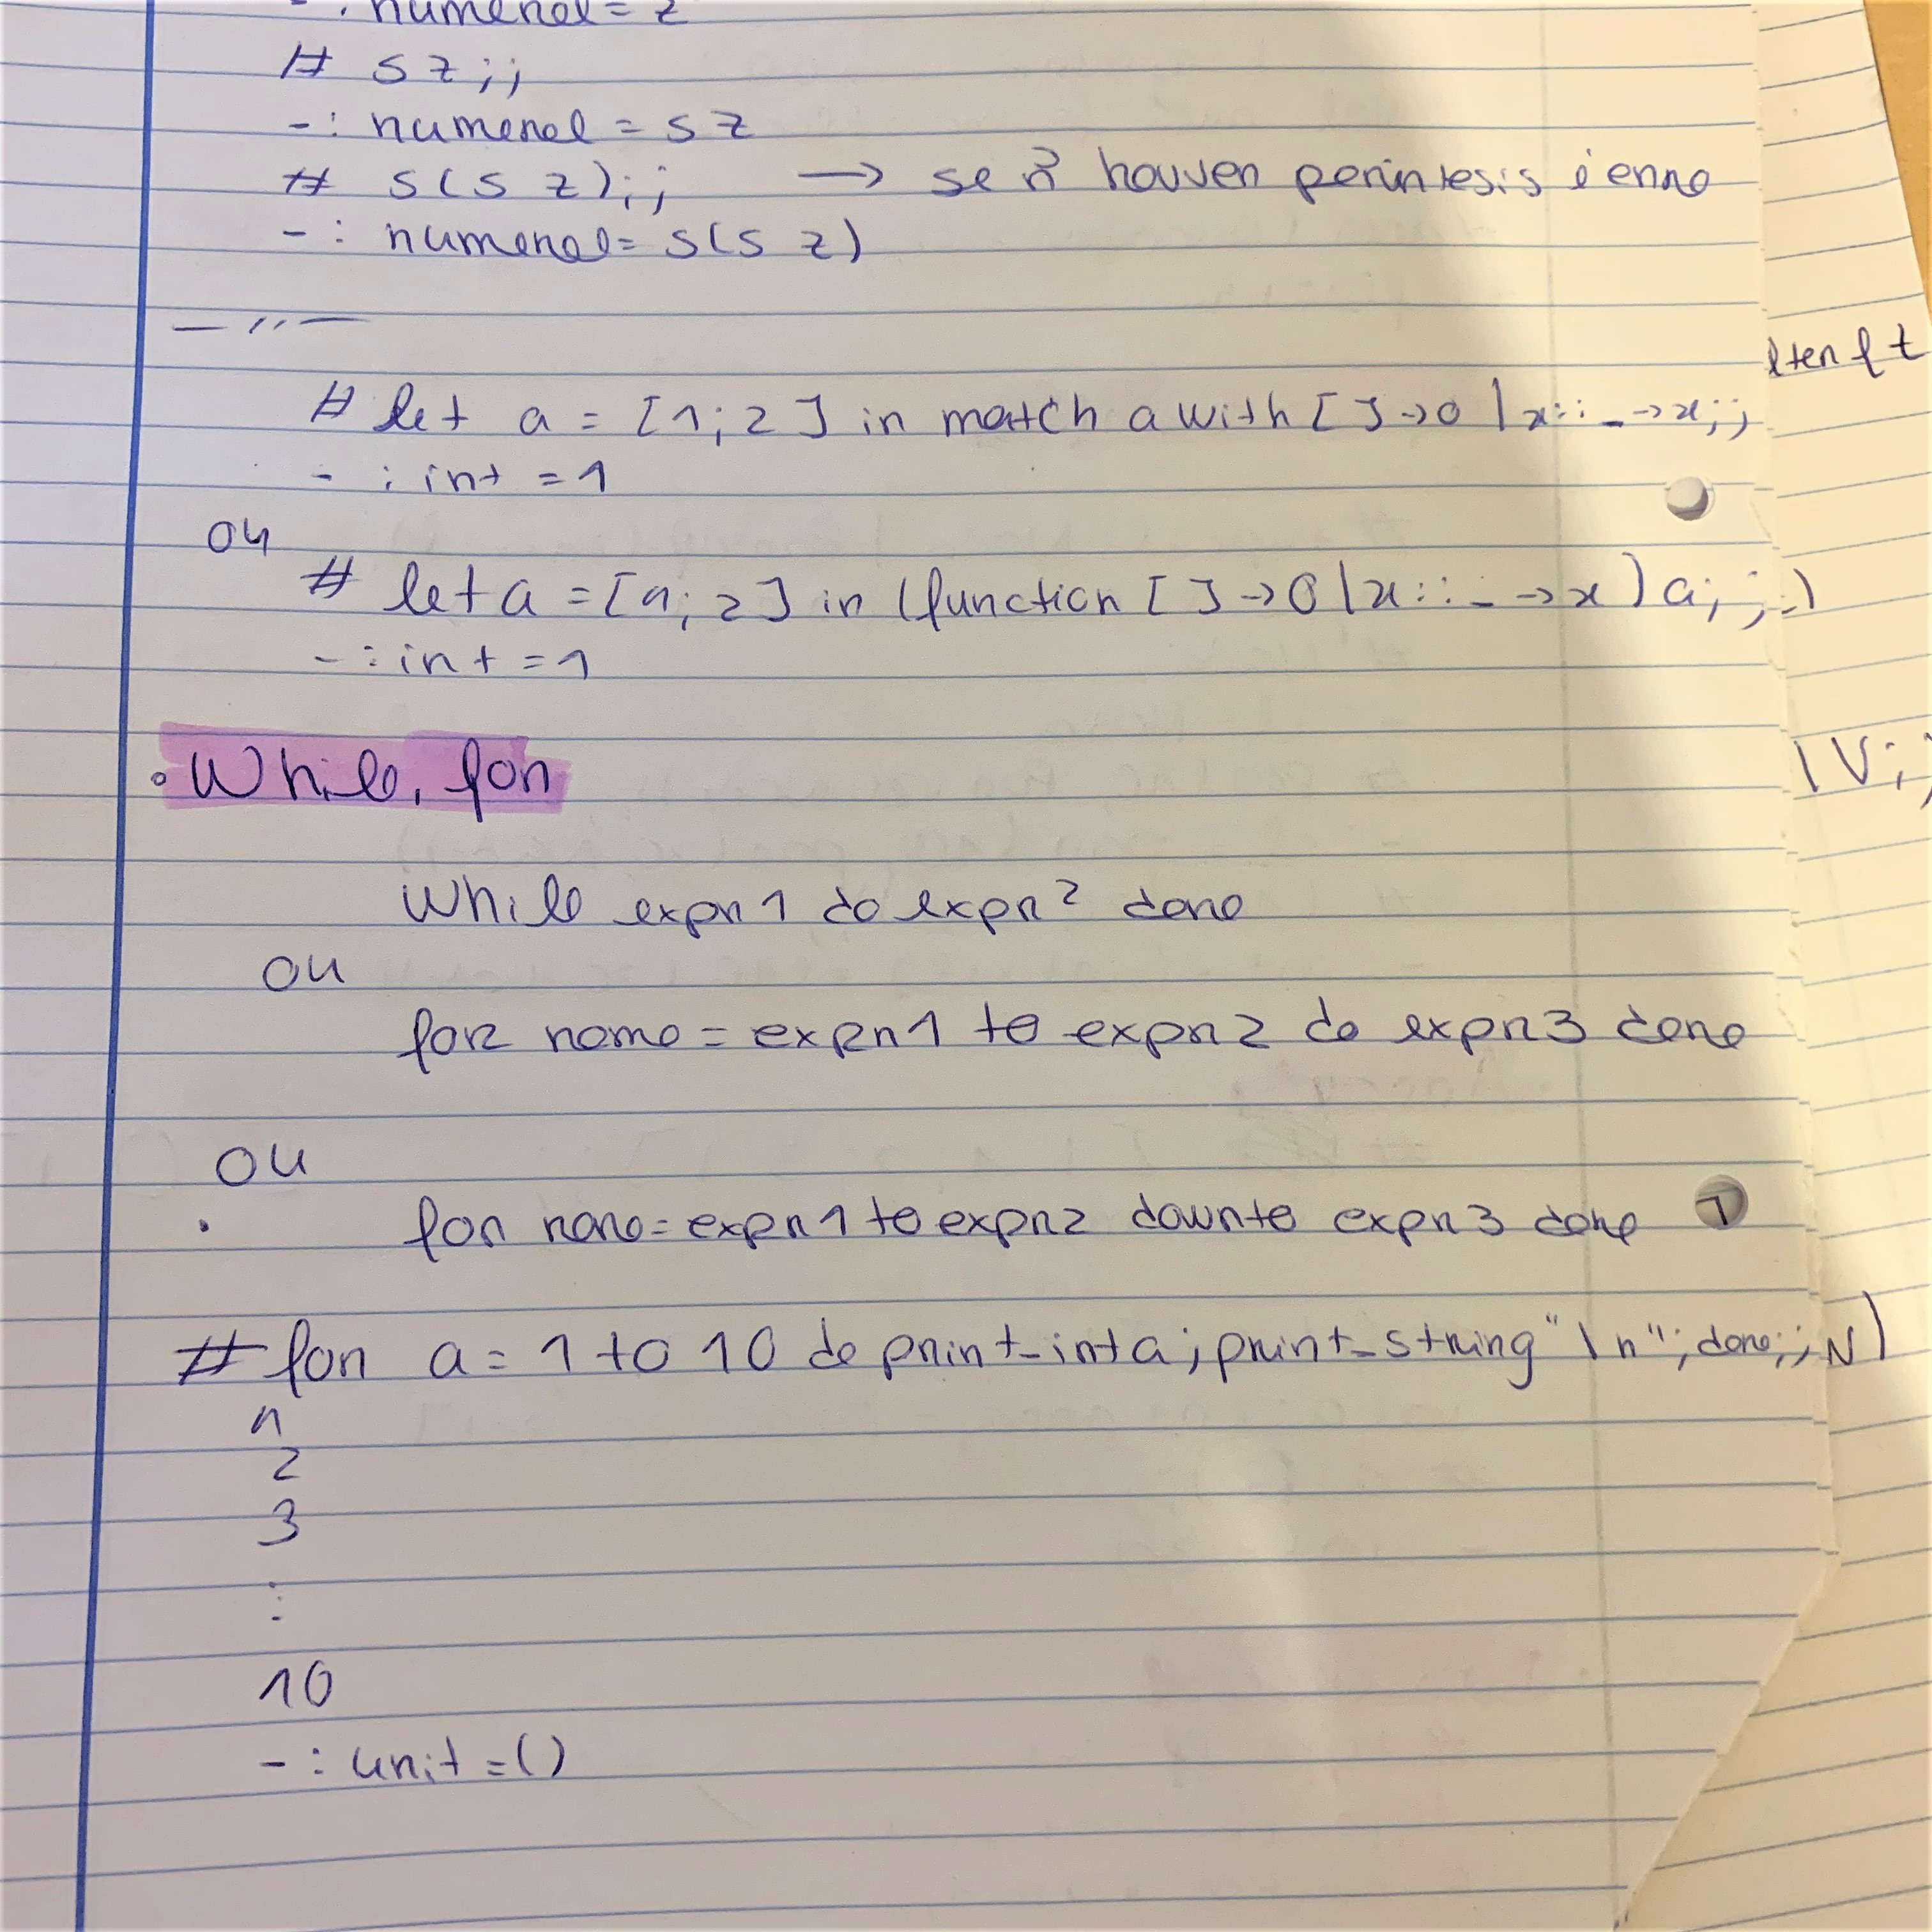 - : numeral = z
# s z;;
- : numeral = s z
# s(s z);; → se ñ houver parêntesis é erro
- : numeral = s(s z)
— ׳׳ —
lter f t
# let a = [1; 2] in match a with [ ] → 0 | x :: _ → x;;
- : int = 1
ou
# let a = [1; 2] in (function [ ] → 0 | x :: _ → x) a;;
- : int = 1
| V;
• While, for
While expr1 do expr2 done
ou
for nome = expr1 to expr2 do expr3 done
ou
for nome = expr1 to expr2 downto expr3 done
# for a = 1 to 10 do print_int a; print_string "\n"; done;;
N)
1
2
3
⋮
10
- : unit = ()